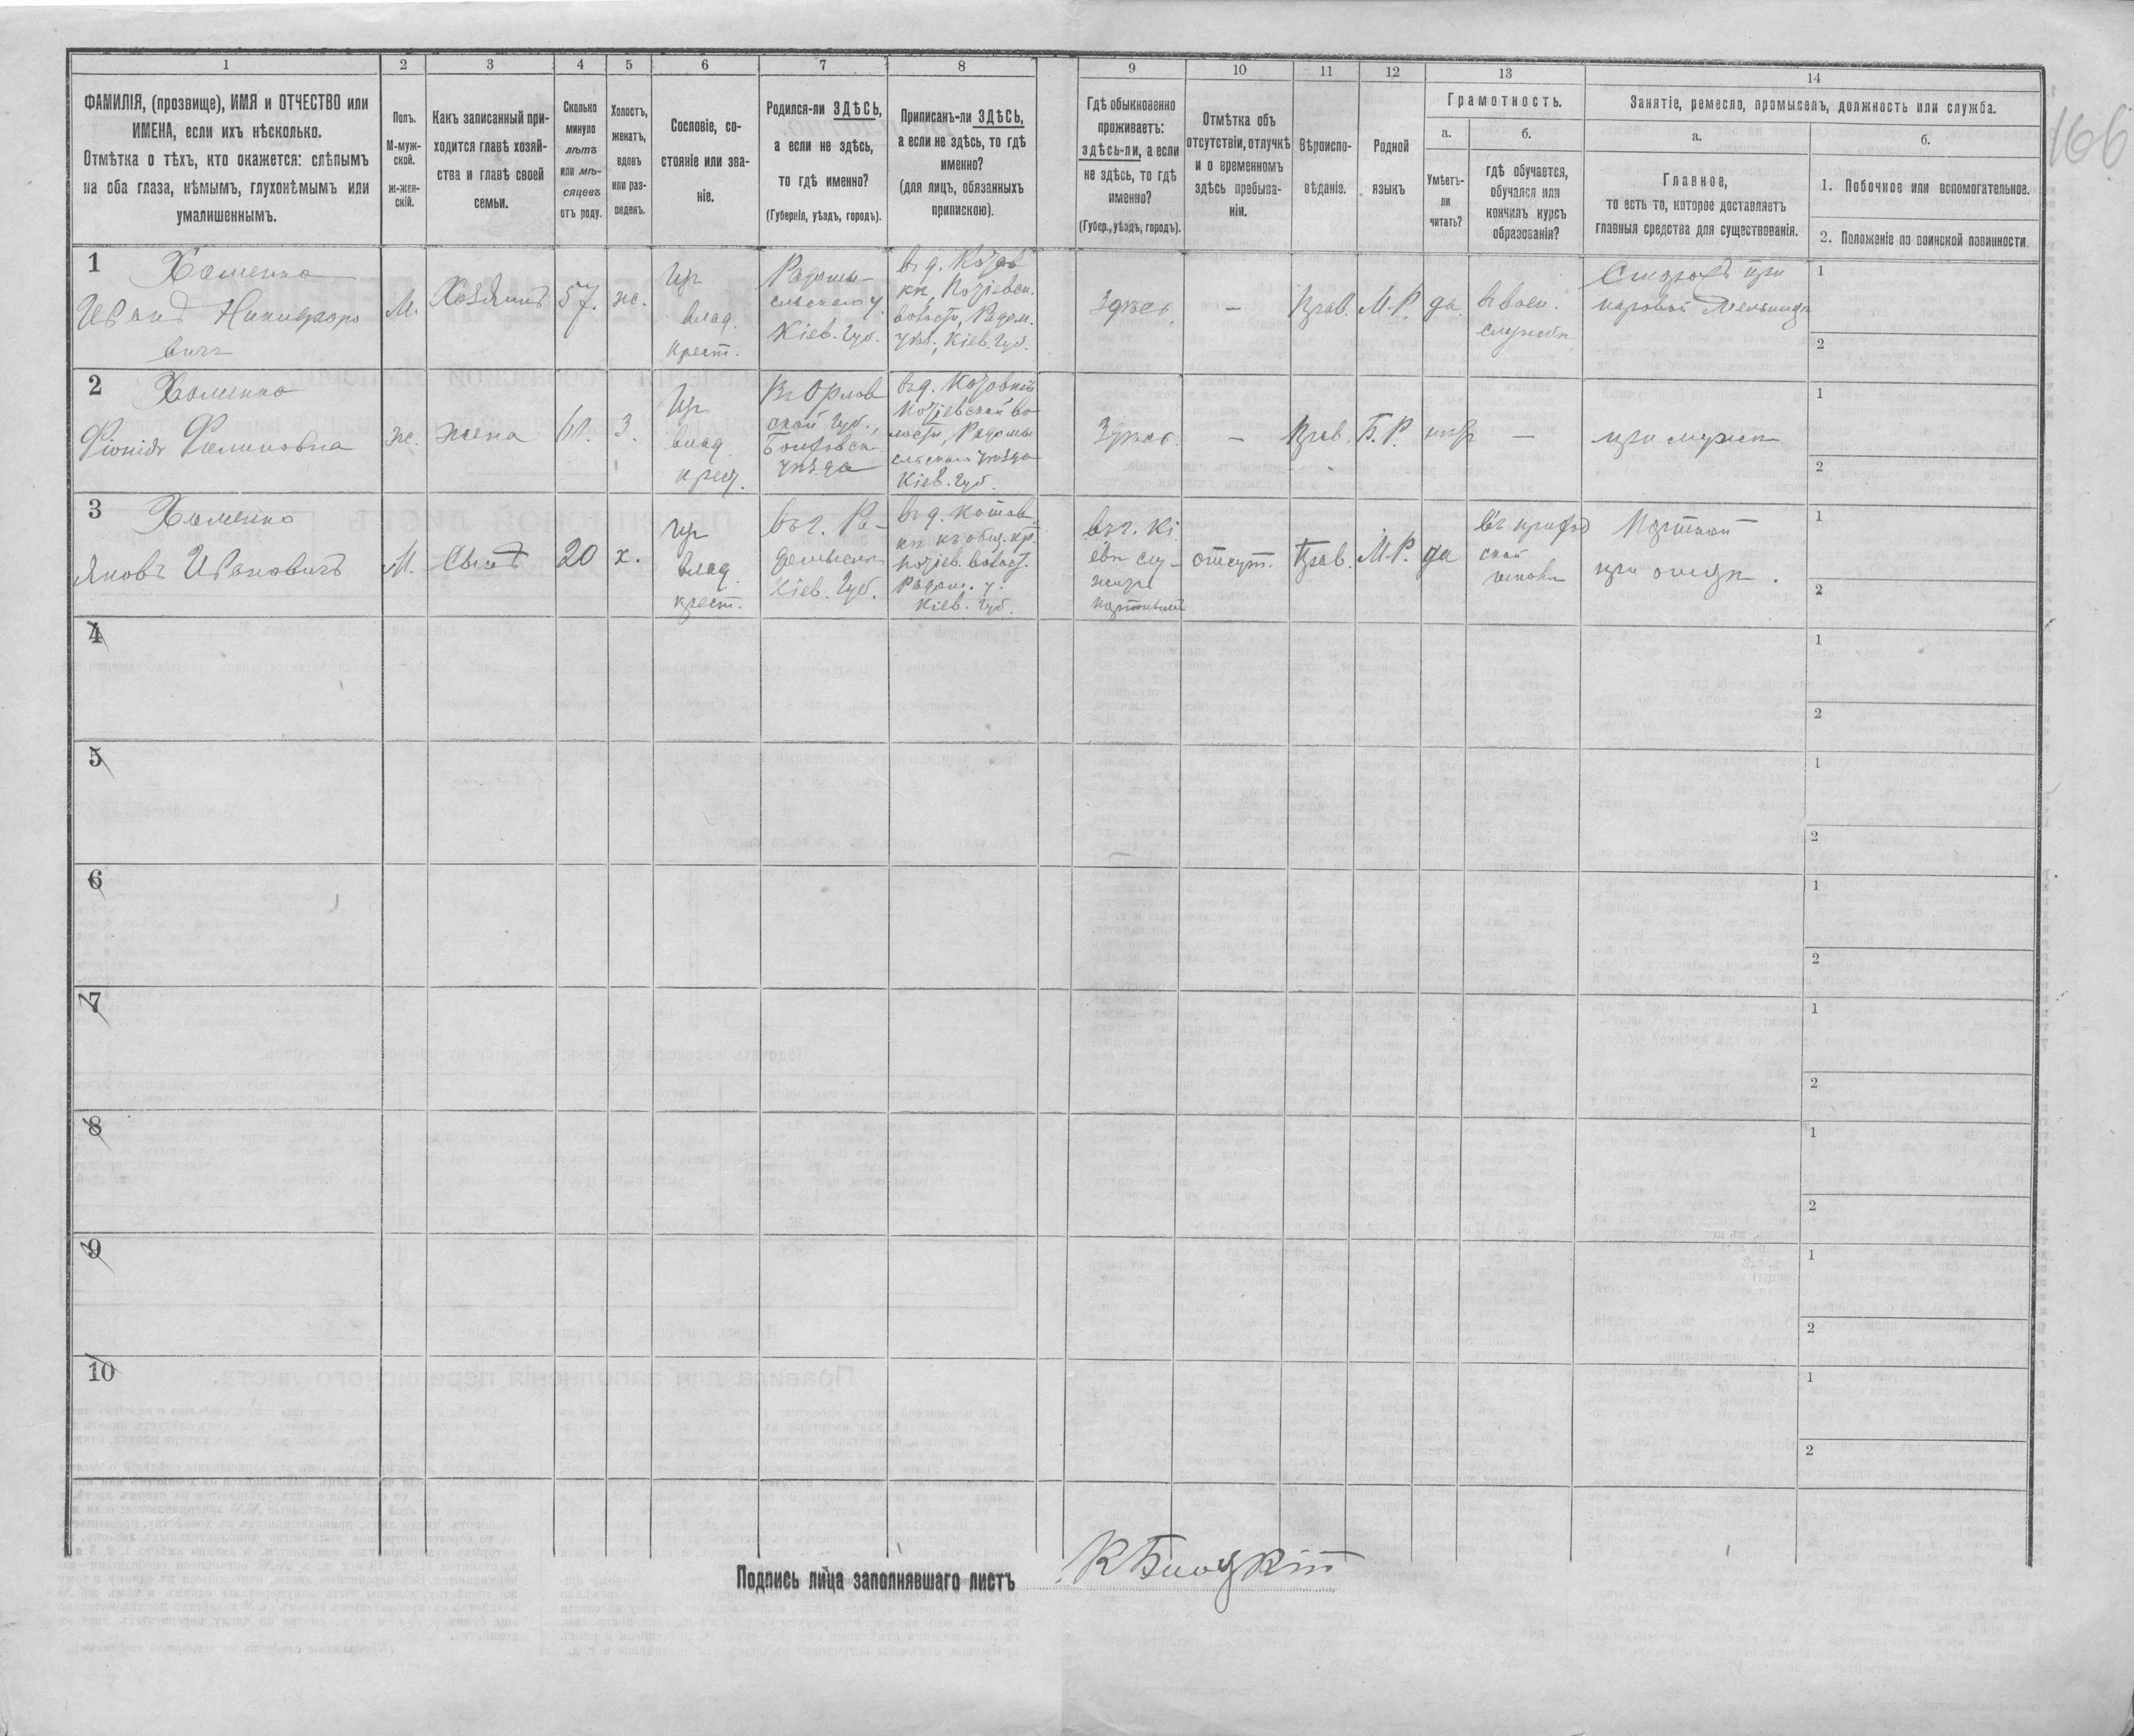 1
2
3
4
5
6
7
8
9
10
11
12
13
14
ФАМИЛІЯ, (прозвище), ИМЯ и ОТЧЕСТВО или
ИМЕНА, если ихъ нѣсколько.
Отмѣтка о тѣхъ, кто окажется: слѣпымъ
на оба глаза, нѣмымъ, глухонѣмымъ или
умалишеннымъ.
Полъ.
М-муж-
ской.
ж-жен-
скій.
Какъ записанный при-
ходится главѣ хозяй-
ства и главѣ своей
семьи.
Сколько
минуло
лѣтъ
или мѣ-
сяцевъ
отъ роду.
Холостъ,
женатъ,
вдовъ
или раз-
веденъ.
Сословіе, со-
стояніе или зва-
ніе.
Родился-ли ЗДѢСЬ,
а если не здѣсь,
то гдѣ именно?
(Губернія, уѣздъ, городъ).
Приписанъ-ли ЗДѢСЬ,
а если не здѣсь, то гдѣ
именно?
(для лицъ, обязанныхъ
припискою).
Гдѣ обыкновенно
проживаетъ:
здѣсь-ли, а если
не здѣсь, то гдѣ
именно?
(Губер., уѣздъ, городъ).
Отмѣтка объ
отсутствіи, отлучкѣ
и о временномъ
здѣсь пребыва-
ніи.
Вѣроиспо-
вѣданіе.
Родной
языкъ
Грамотность.
а.
б.
Умѣетъ-
ли
читать?
гдѣ обучается,
обучался или
кончилъ курсъ
образованія?
Занятіе, ремесло, промыселъ, должность или служба.
а.
б.
Главное,
то есть то, которое доставляетъ
главныя средства для существованія.
1. Побочное или вспомогательное.
2. Положеніе по воинской повинности.
166
1
Хоменко
Иванъ Никифоро
вичъ
М.
Хозяинъ
57.
ж.
влад.
крест.
Радомы-
сльскаго у.
Кіев. Губ.
волости, Радом.
уѣз., Кіев. Губ.
Здѣсь
–
Прав.
М.Р.
да
въ воен.
службѣ
Сторожъ при
паровой мельницѣ
1
2
2
Хоменко
Филиповна
ж.
жена
З.
влад.
крест.
Въ Орлов
ской Губ.,
уѣзда
волости, Радомы
сльскаго уѣзда
Кіев. Губ.
Здѣсь.
–
Прав.
Б.Р.
–
при мужѣ
1
2
3
Хоменко
Яковъ Ивановичъ
М.
Сынъ
20
х.
влад.
крест.
въ г. Ра-
домыслѣ
Кіев. Губ.
Радом. у.
Кіев. Губ.
въ г. Кі
евѣ слу-
житъ
отсут.
Прав.
М.Р.
да
въ приход
ской
школѣ
Портной
при отцѣ.
1
2
4
1
2
5
1
2
6
1
2
7
1
2
8
1
2
9
1
2
10
1
2
Подпись лица заполнявшаго листъ